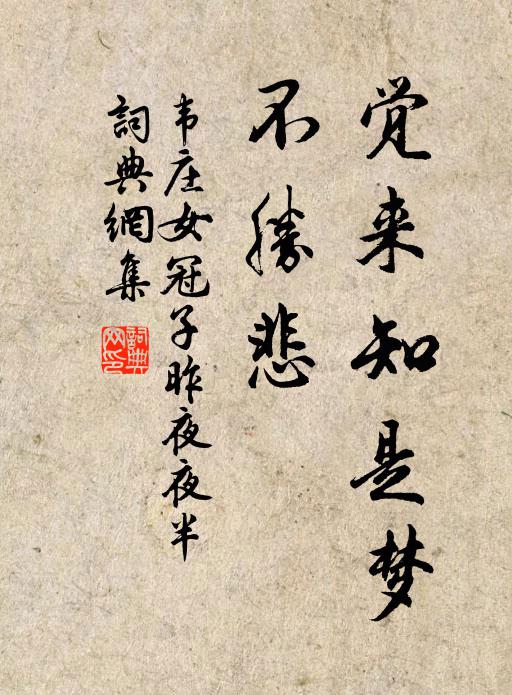 觉来知是梦
不勝悲
韦庄女冠子昨夜夜半
詞典網集
詞典网印